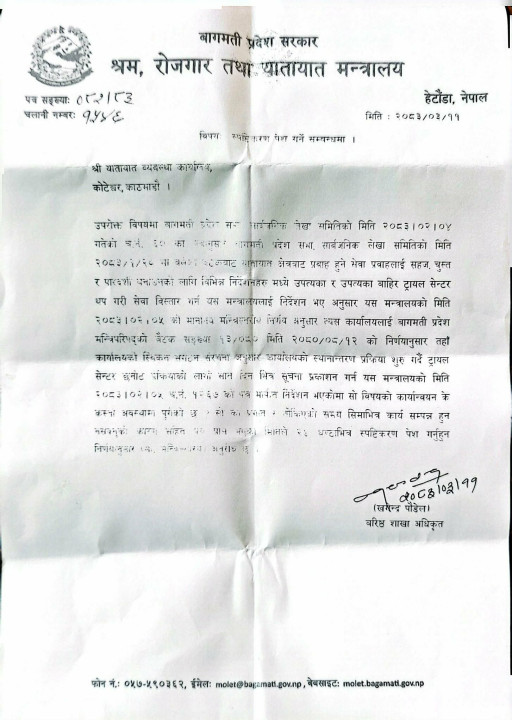 बागमती प्रदेश सरकार
श्रम, रोजगार तथा यातायात मन्त्रालय
हेटौंडा, नेपाल
पत्र सङ्ख्याः ०८२।८३
चलानी नम्बरः १५४६
मिति : २०८३/०३/११
विषयः स्पष्टिकरण पेश गर्ने सम्बन्धमा ।
श्री यातायात व्यवस्था कार्यालय,
कोटेश्वर, काठमाडौं ।
उपरोक्त विषयमा बागमती प्रदेश सभा, सार्वजनिक लेखा समितिको मिति २०८३।०२।०४
गतेको च.नं. ६० का बागमती प्रदेश सभा, सार्वजनिक लेखा समितिको मिति
२०८३/१/२८ मा यातायात क्षेत्रबाट प्रवाह हुने सेवा प्रवाहलाई सहज, चुस्त
र पारदर्शी लागि विभिन्न निर्देशनहरु मध्ये उपत्यका र उपत्यका बाहिर ट्रायल सेन्टर
थप गरी सेवा विस्तार गर्न यस मन्त्रालयलाई निर्देशन भए अनुसार यस मन्त्रालयको मिति
२०८३।०२।०५ को मन्त्रिस्तरीय निर्णय अनुसार त्यस कार्यालयलाई बागमती प्रदेश
मन्त्रिपरिषद्को बैठक सङ्ख्या १३/०८० मिति २०८०/०८/१२ को निर्णयानुसार तहाँ
कार्यालयको संरचना अनुसार कार्यालयको स्थानान्तरण प्रक्रिया शुरु गर्दै ट्रायल
सेन्टर छनौट प्रक्रियाको लागि सात दिने भित्र सूचना प्रकाशन गर्न यस मन्त्रालयको मिति
२०८३।०२।०५ च.नं. को पत्र मार्फत निर्देशन भएकोमा सो विषयको कार्यान्वयन के
कस्तो अवस्थामा पुगेको छ ? सो को तोकिएको समय सिमाभित्र कार्य सम्पन्न हुन
नसक्नुको कारण सहित यो पत्र मितिले २४ घण्टाभित्र स्पष्टिकरण पेश गर्नुहुन
निर्णयानुसार अनुरोध छ ।
२०८३/०३/११
(खगेन्द्र पौडेल)
वरिष्ठ शाखा अधिकृत
फोन नं.: ०५७-५९०३६२, ईमेलः molet@bagamati.gov.np, वेबसाइटः molet.bagamati.gov.np